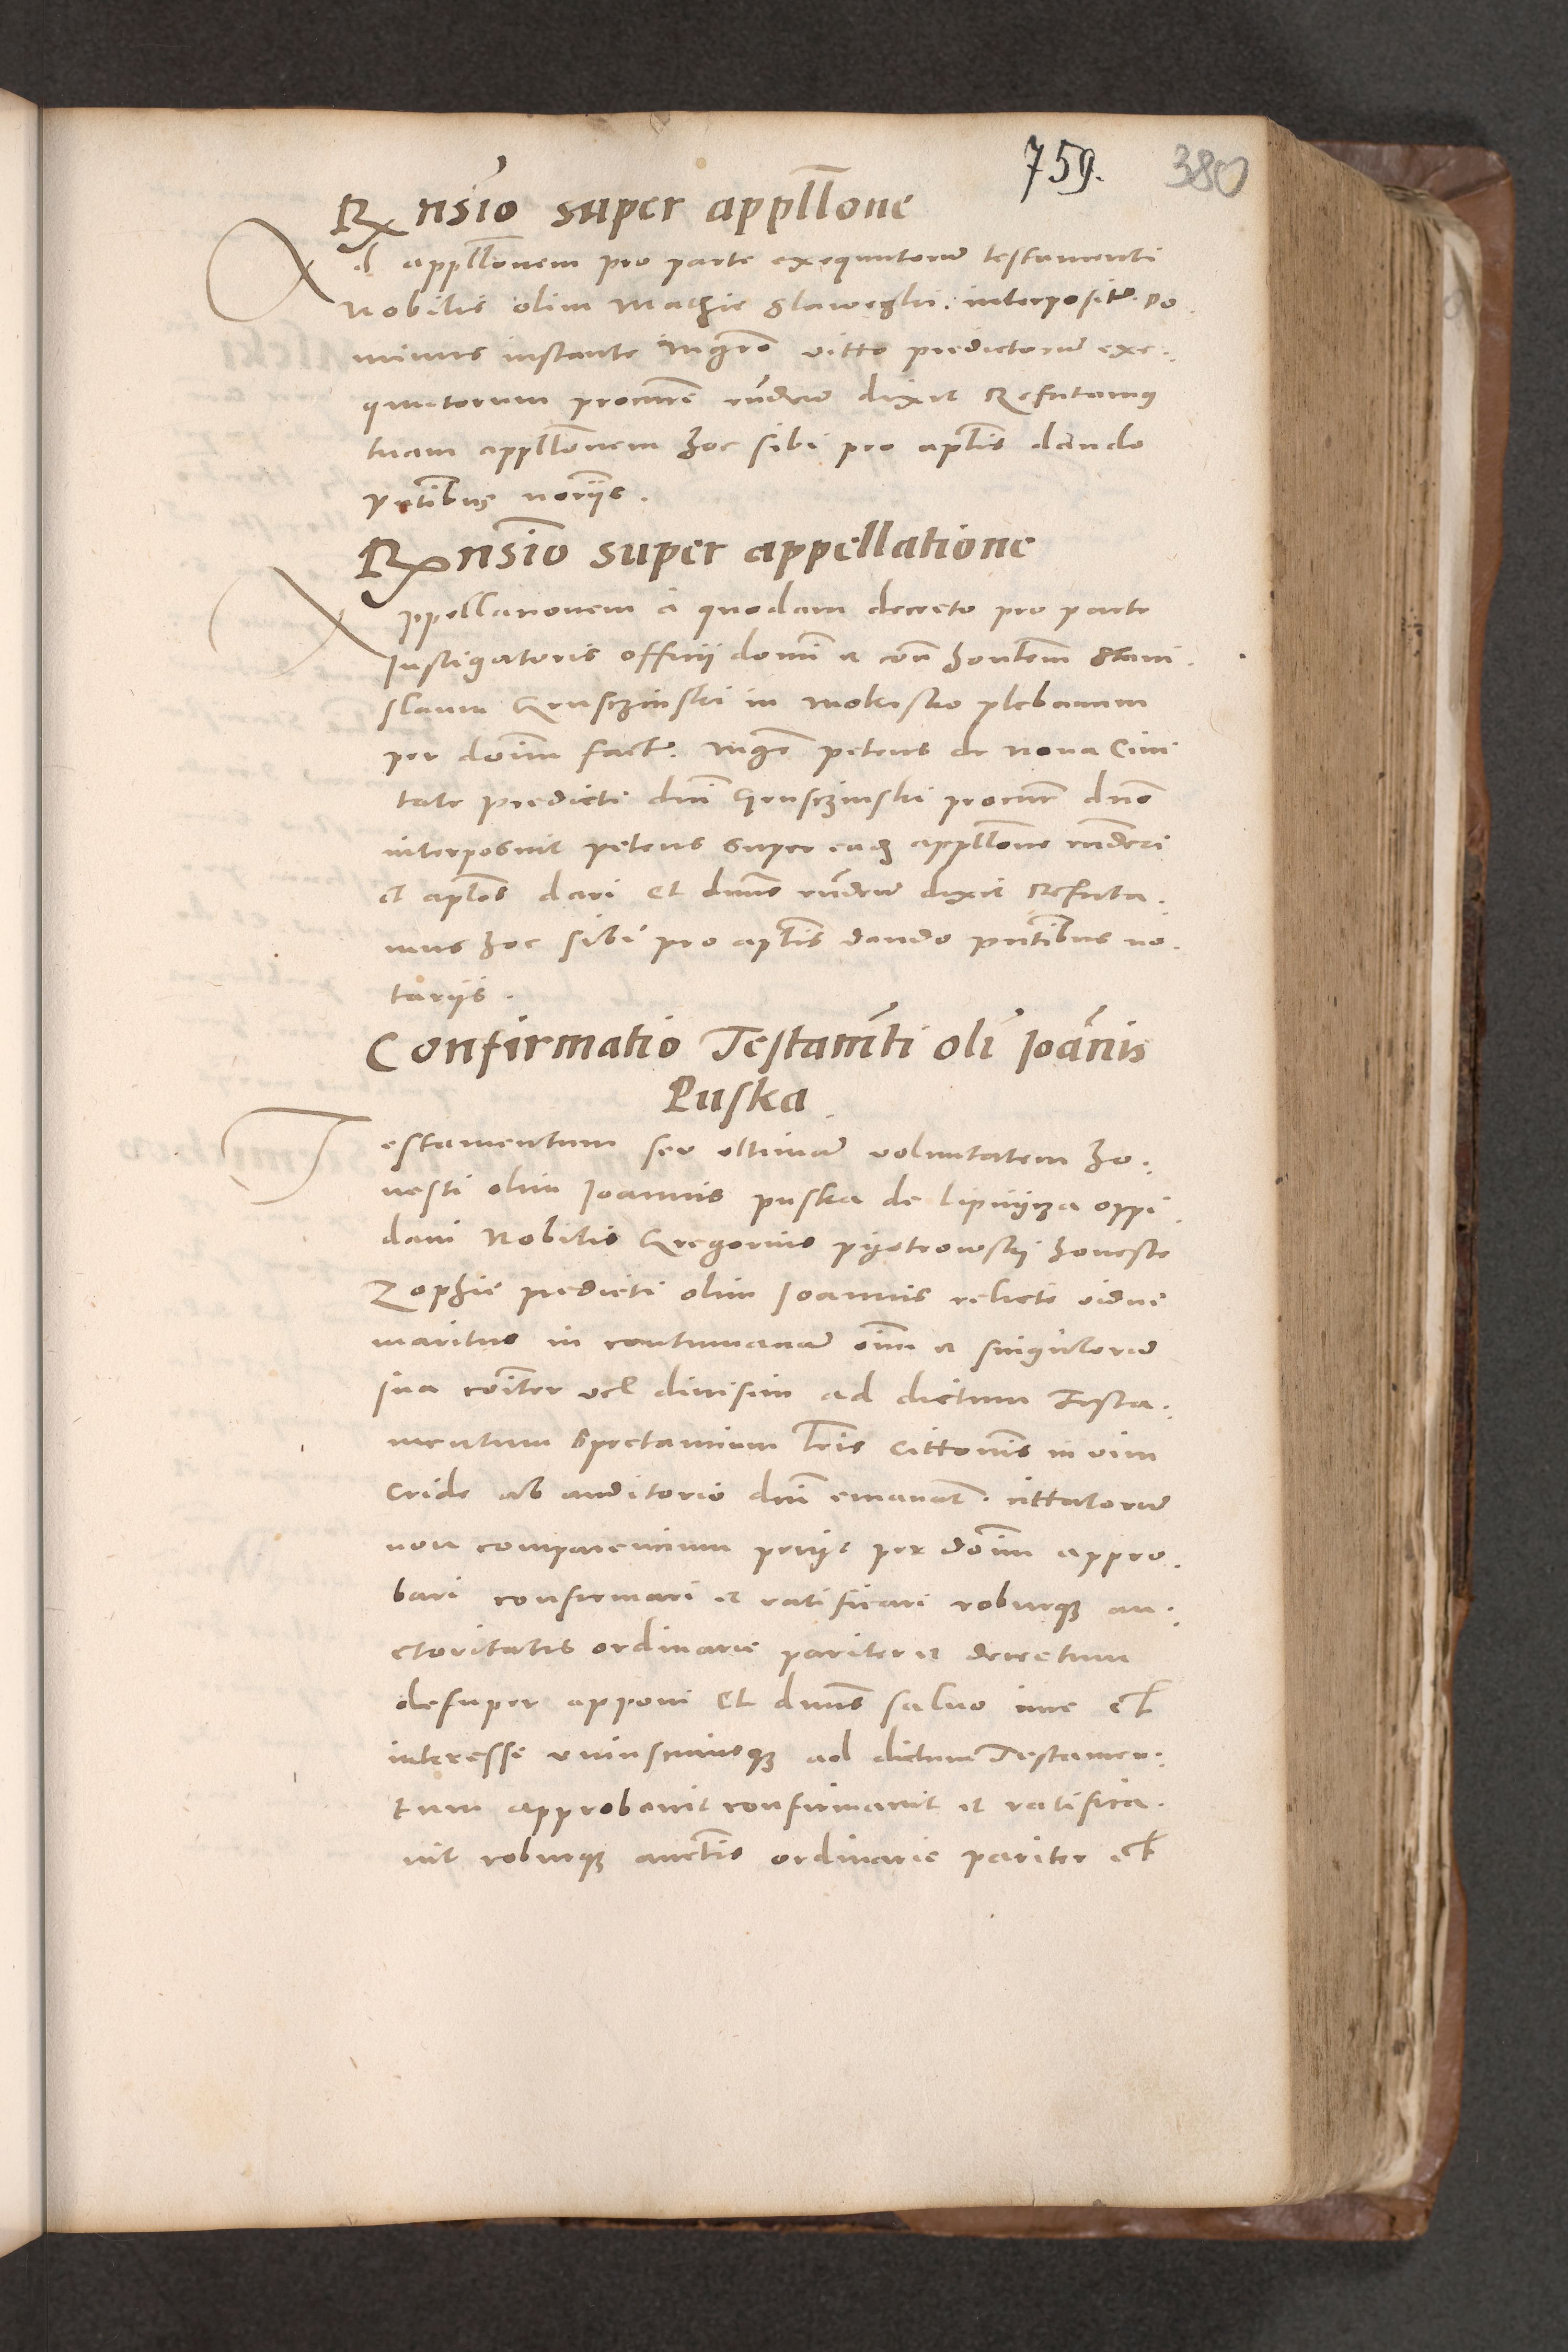 759. 380
Rnsio super appllone
Ad appllonem pro parte exequutorum testamenti
Nobilis olim Mathie Slaweghi. interposit. Do
minus instante Mgro vitto predictorum exe.
quutorum procure rndew dixit Refutamus
tuam appllonem hoc sibi pro aptlis dando
pntibus noriis.
Rnsio super appellatione
Appellacionem a quodam decreto pro parte
Instigatoris officii domi et con hontem Stani.
slaum Gruszinski in Mokrsko plebanum
per doim fact. Mgr petrus de Nova Civi
tate predicti dni Gruszinski procur dno
interposuit petens super eadem appllone rnderi
et aptlos dari Et dnus rndew dixit Refuta.
mus hoc sibi pro aptlis dando pntibus no.
tariis.
Confirmatio Testamti oli Joanis
Puska
Testamentum seu ultimam voluntatem ho.
nesti olim Joannis puska de lipnyza oppi
dani Nobilis Gregorius pyotrowsky honeste
Zophie predicti olim Joannis relicte vidue
maritus in contumaciam oim et singulorum
sua coiter vel divisim ad dictum Testa.
mentum spectancium Lris cittonis in vim
Cride ab auditorio dni emanat. cittatorum
non comparencium petiit per doim appro.
bari confirmari et ratificari roburque au.
ctoritatis ordinarie pariter et decretum
desuper apponi Et dnus salvo iure et
interesse uniuscuiusque ad dictum Testamen.
tum approbavit confirmavit et ratifica.
vit roburque auctis ordinarie pariter et